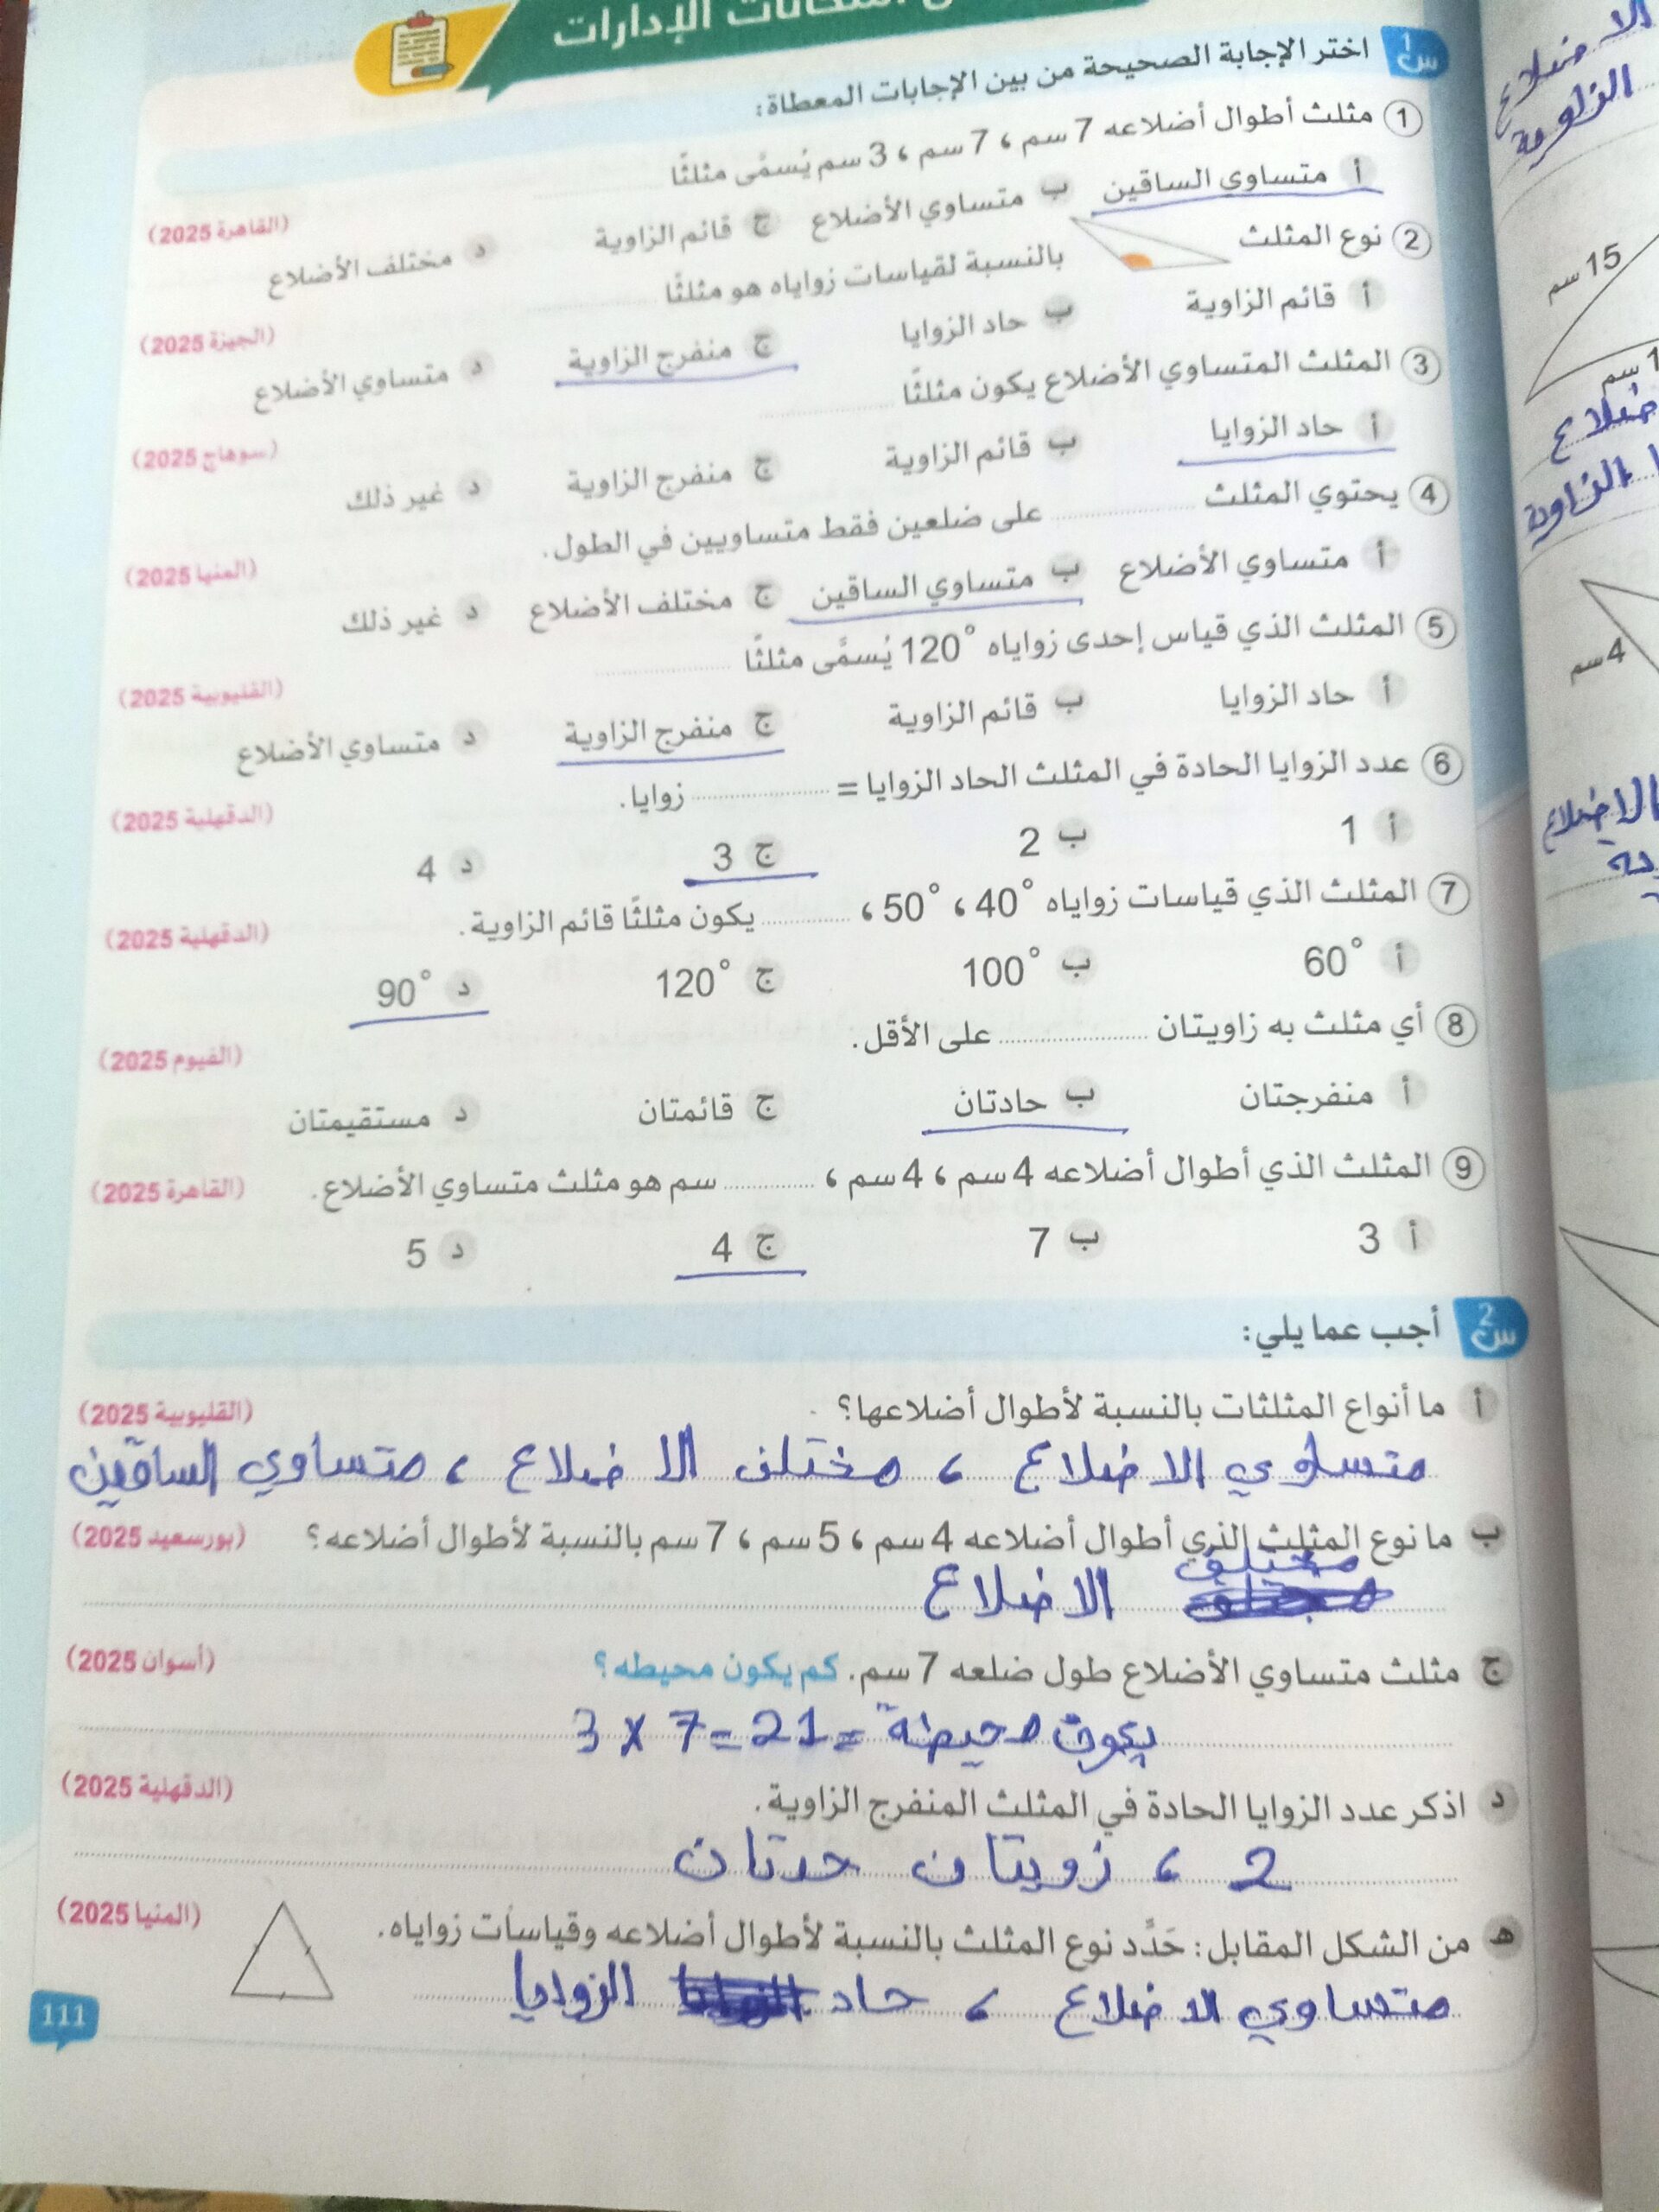 الإدارات
س1 اختر الإجابة الصحيحة من بين الإجابات المعطاة:
1 مثلث أطوال أضلاعه 7 سم ، 7 سم ، 3 سم يُسمَّى مثلثًا .......... (القاهرة 2025)
أ متساوي الساقين ب متساوي الأضلاع ج قائم الزاوية د مختلف الأضلاع
2 نوع المثلث بالنسبة لقياسات زواياه هو مثلثًا .......... (الجيزة 2025)
أ قائم الزاوية ب حاد الزوايا ج منفرج الزاوية د متساوي الأضلاع
3 المثلث المتساوي الأضلاع يكون مثلثًا .......... (سوهاج 2025)
أ حاد الزوايا ب قائم الزاوية ج منفرج الزاوية د غير ذلك
4 يحتوي المثلث .......... على ضلعين فقط متساويين في الطول. (المنيا 2025)
أ متساوي الأضلاع ب متساوي الساقين ج مختلف الأضلاع د غير ذلك
5 المثلث الذي قياس إحدى زواياه 120° يُسمَّى مثلثًا .......... (القليوبية 2025)
أ حاد الزوايا ب قائم الزاوية ج منفرج الزاوية د متساوي الأضلاع
6 عدد الزوايا الحادة في المثلث الحاد الزوايا = .......... زوايا. (الدقهلية 2025)
أ 1 ب 2 ج 3 د 4
7 المثلث الذي قياسات زواياه 40° ، 50° ، .......... يكون مثلثًا قائم الزاوية. (الدقهلية 2025)
أ 60° ب 100° ج 120° د 90°
8 أي مثلث به زاويتان .......... على الأقل. (الفيوم 2025)
أ منفرجتان ب حادتان ج قائمتان د مستقيمتان
9 المثلث الذي أطوال أضلاعه 4 سم ، 4 سم ، .......... سم هو مثلث متساوي الأضلاع. (القاهرة 2025)
أ 3 ب 7 ج 4 د 5
س2 أجب عما يلي:
أ ما أنواع المثلثات بالنسبة لأطوال أضلاعها؟ (القليوبية 2025)
متساوي الاضلاع ، مختلف الاضلاع ، متساوي الساقين
ب ما نوع المثلث الذي أطوال أضلاعه 4 سم ، 5 سم ، 7 سم بالنسبة لأطوال أضلاعه؟ (بورسعيد 2025)
مختلف الاضلاع
ج مثلث متساوي الأضلاع طول ضلعه 7 سم. كم يكون محيطه؟ (أسوان 2025)
يكون محيطة = 3 x 7 = 21
د اذكر عدد الزوايا الحادة في المثلث المنفرج الزاوية. (الدقهلية 2025)
2 ، زويتان حدتان
هـ من الشكل المقابل: حَدِّد نوع المثلث بالنسبة لأطوال أضلاعه وقياسات زواياه. (المنيا 2025)
متساوي الاضلاع ، حاد الزوايا
111
الاضلاع
الزاوية
15 سم
1 سم
ضلاع
الزاوية
4 سم
الاضلاع